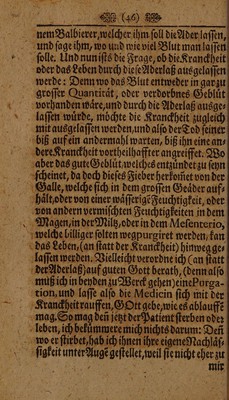 (46)
nem Balbierer, welcher ihm soll die Ader lassen,
und sage ihm, wo und wie viel Blut man lassen
solle. Und nun ists die Frage, ob die Kranckheit
oder das Leben durch diese Aderlaß ausgelassen
werde: Denn wo das Blut entweder in gar zu
grosser Quantität, oder verdorbnes Geblüt
vorhanden wäre, und durch die Aderlaß ausge-
lassen würde, möchte die Kranckheit zugleich
mit ausgelassen werden, und also der Tod seiner
biß auf ein andermahl warten, biß ihn eine an-
dere Kranckheit vortheilhaffter angriffe. Wo
aber das gute Geblüt, welches entzündet zu seyn
scheinet, da doch dieses Fieber herkom̄et von der
Galle, welche sich in dem grossen Geäder auf-
hält, oder von einer wässerigē Feuchtigkeit, oder
von andern vermischten Feuchtigkeiten in dem
Magen, in der Milß, oder in dem Mesenterio,
welche billiger solten wegpurgiret werden, kan
das Leben, (an statt der Kranckheit) hinweg ge-
lassen werden. Vielleicht verordne ich (an statt
der Aderlaß) auf guten Gott berath, (denn also
muß ich in beyden zu Werck gehen) eine Purga-
tion, und lasse also die Medicin sich mit der
Kranckheit rauffen, GOtt gebe, wie es ablauffē
mag. So mag deñ jetzt der Patient sterben oder
leben, ich bekümmere mich nichts darum: Deñ
wo er stirbet, hab ich ihnen ihre eigene Nachläs-
sigkeit unter Augē gestellet, weil sie nicht eher zu
mir